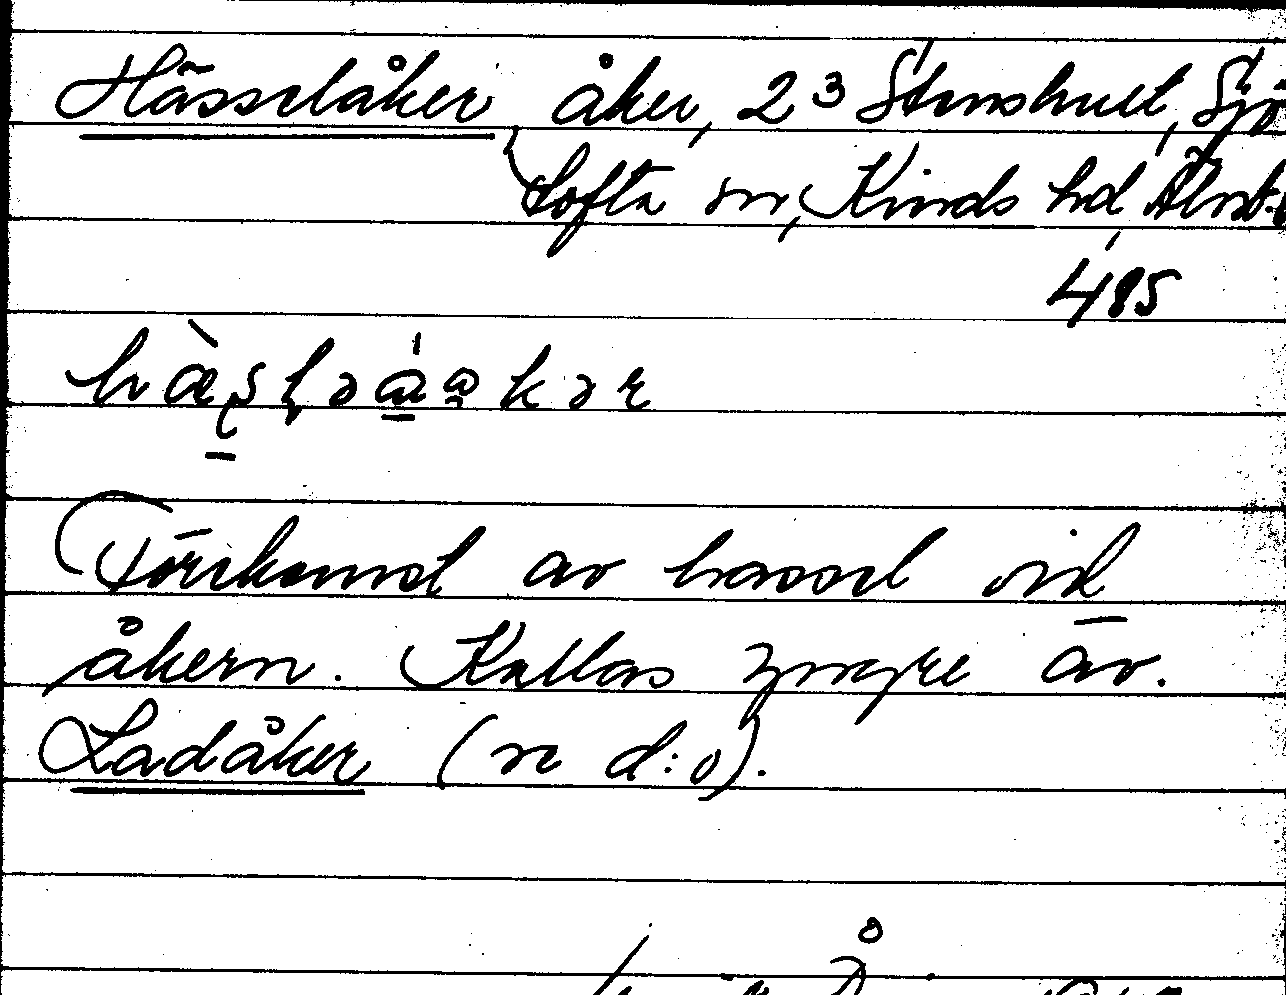 Hässelåker, åker, 2³ Stenshult, Sjö
tofta sn, Kinds hd, Älvsb.
485
Förekomst av hassel vid
åkern. Kallas yngre av.
Ladåker (n d:o).